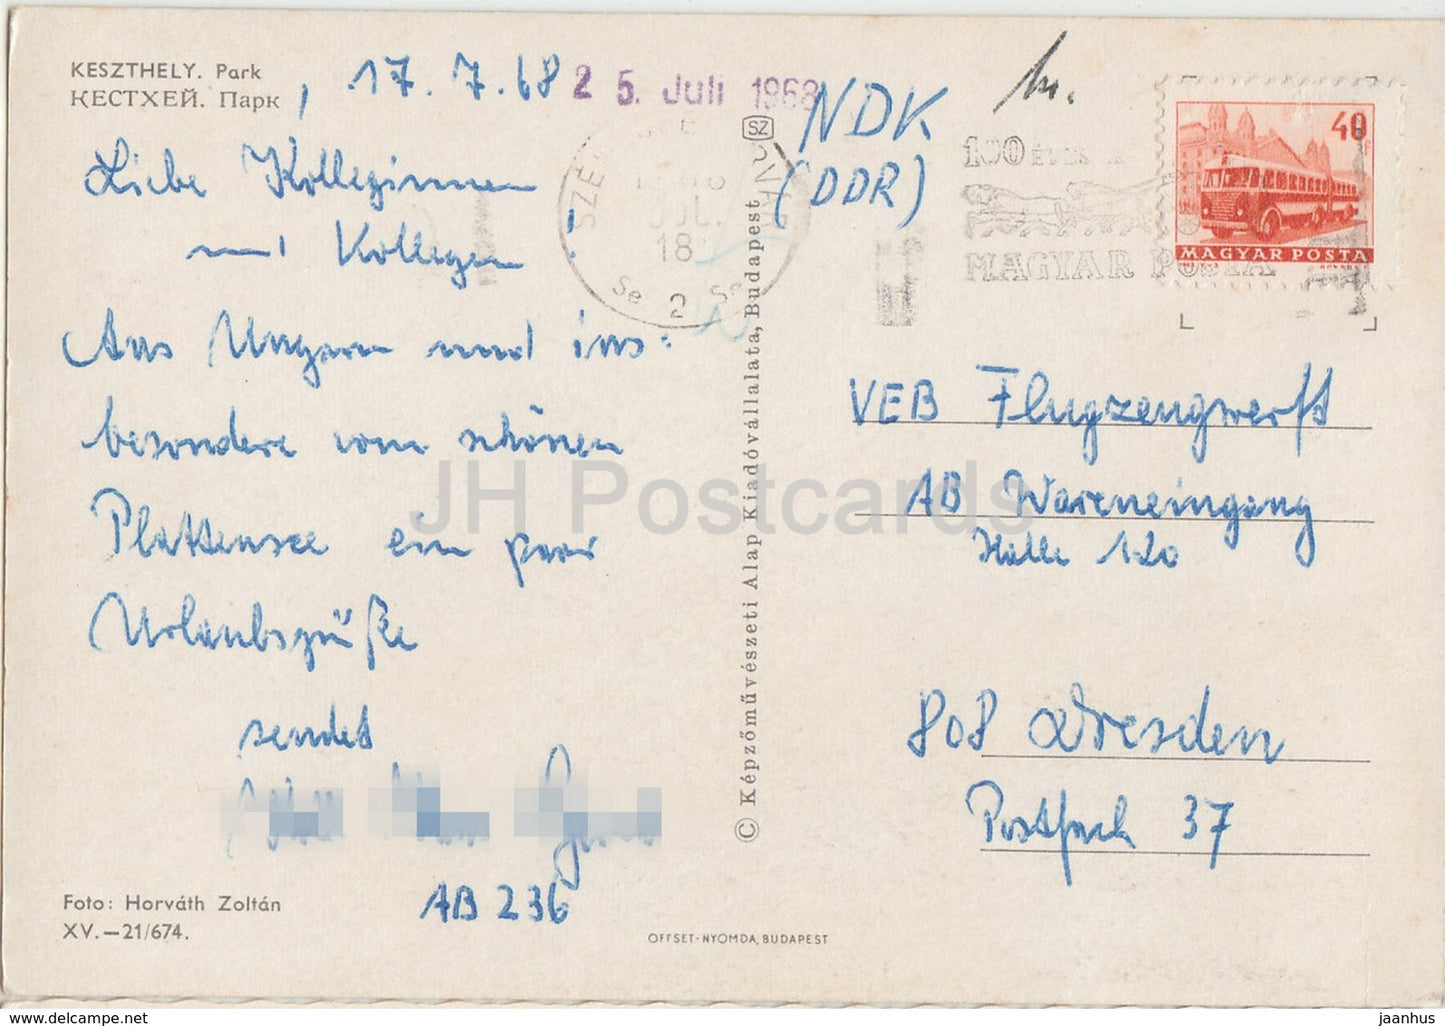 KESZTHELY. Park
КЕСТХЕЙ. Парк
, 17. 7. 68
25. Juli 1968
Liebe Kolleginnen
und Kollegen !
Aus Ungarn und ins-
besondere vom schönen
Plattensee ein paar
Urlaubsgrüße
sendet
AB 236
Foto: Horváth Zoltán
XV.—21/674.
OFFSET-NYOMDA, BUDAPEST
© Képzőművészeti Alap Kiadóvállalata, Budapest
SZ
18
Se 2 Se
NDK
(DDR)
100 ÉVES A
MAGYAR POSTA
40f
MAGYAR POSTA
VEB Flugzeugwerft
AB Wareneingang
Halle 120
808 Dresden
Postfach 37
JH Postcards
jaanhus @ www.delcampe.net